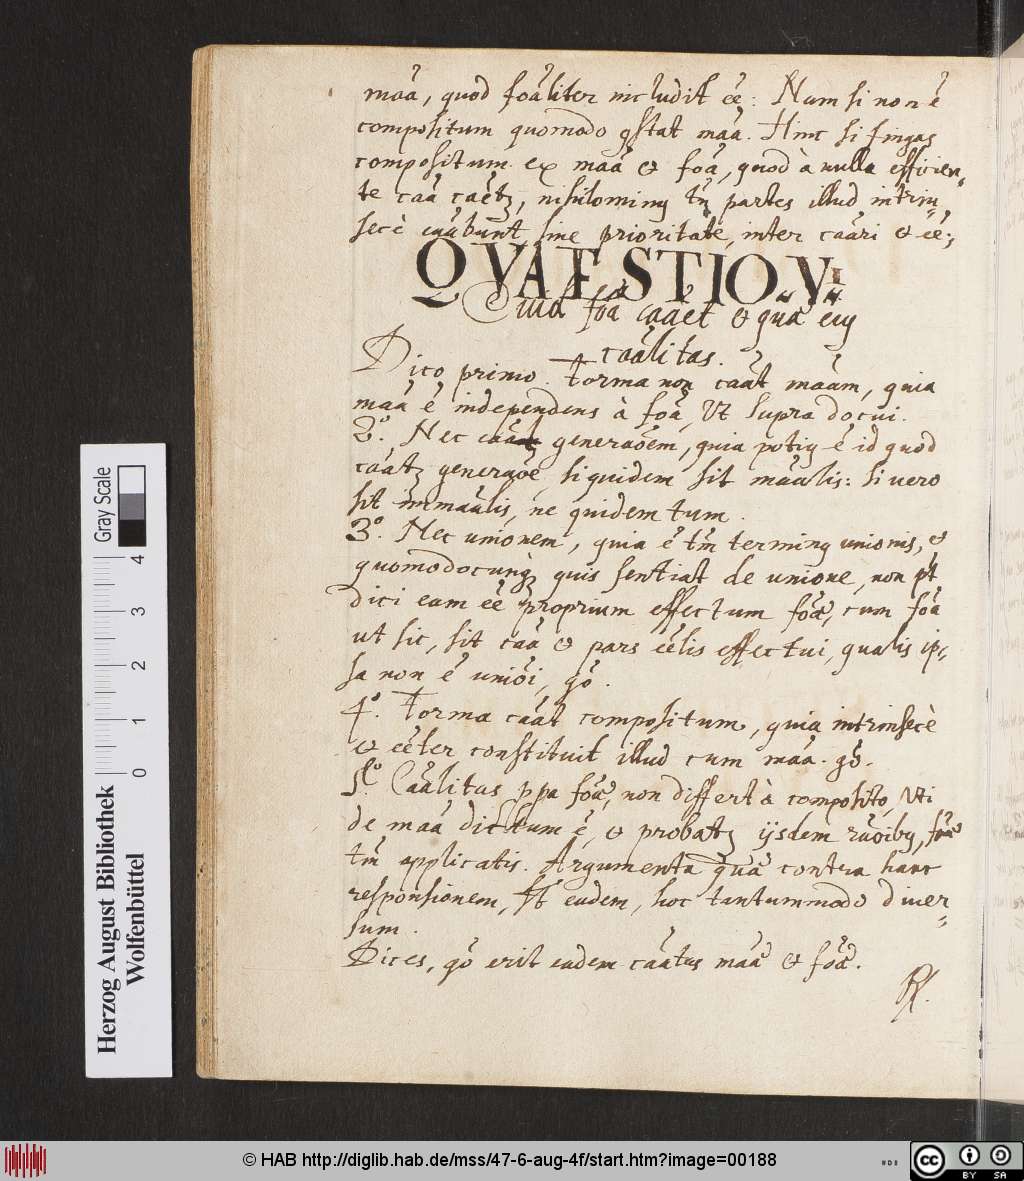 maã, quod foãliter includit eẽ: Nam si non ẽ
compositum quomodo gstat maã. Hinc si fingas
compositum ex maã & foã, quod à nulla efficien„
te caã caẽtz, nihilominq tñ partes illud intrin„
secè caãbunt sine prioritate, inter caãri & eẽ;
QVAESTIO. V.
Quid foã caãet & quã eiq
caãlitas.
Dico primo. Forma non caãt maãm, quia
maã ẽ independens à foã, Vt supra docui.
2º. Nec caãt generaõem, quia potiq ẽ id quod
caãtz generaõe, siquidem sit maãlis: si vero
sit immaãlis, ne quidem tum.
3º. Nec unionem, quia ẽ tm̃ terminq unionis, &
quomodocunqz quis sentiat de unione, non pt
dici eam eẽ proprium effectum foãe, cum foã
ut sic, sit caã & pars eẽlis effectui, qualis ip„
sa non ẽ unioĩ, gõ.
4º. Forma caãt compositum, quia intrinsecè
& eẽter constituit illud cum maã. gõ.
5tº. Caãlitas ppa foãe, non differt à composito, Vti
de maã dictum ẽ, & probatz ijsdem raõibq, foãe
tm̃ applicatis. Argumenta quãe contra hanc
responsionem, st eadem, hoc tantummodo diver„
sum.
Dices, gõ erit eadem caãtas maãe & foãe.
R/.
Herzog August Bibliothek
Wolfenbüttel
Gray Scale
0 1 2 3 4
© HAB http://diglib.hab.de/mss/47-6-aug-4f/start.htm?image=00188
cc BY SA